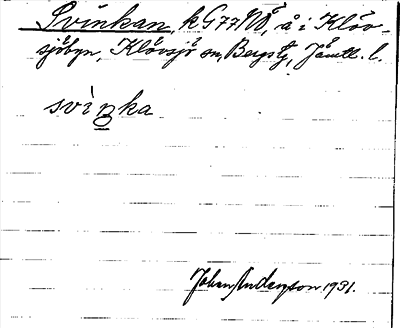 Svinkan, k G77NÖ, å i Klöv-
sjöbyn, Klövsjö sn, Bergs tg, Jämtl. l.
svìŋka
Johan Anderson 1931.